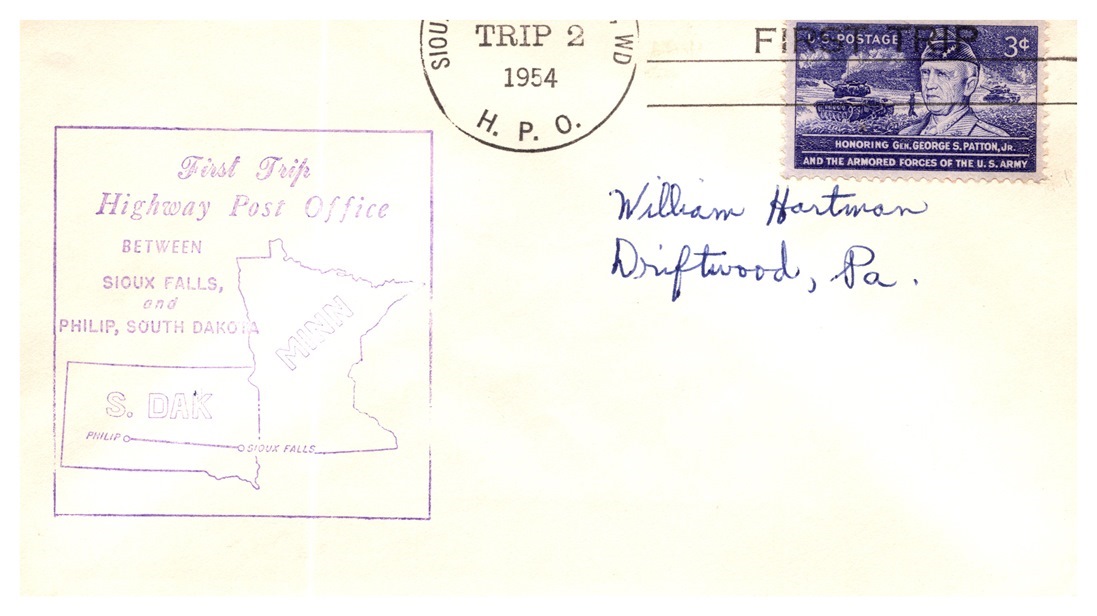 SIOU
WD
TRIP 2
1954
H. P. O.
FIRST TRIP
U.S. POSTAGE
3¢
HONORING GEN. GEORGE S. PATTON, JR.
AND THE ARMORED FORCES OF THE U. S. ARMY
William Hartman
Driftwood, Pa.
First Trip
Highway Post Office
BETWEEN
SIOUX FALLS,
and
PHILIP, SOUTH DAKOTA
MINN
S. DAK
PHILIP
SIOUX FALLS